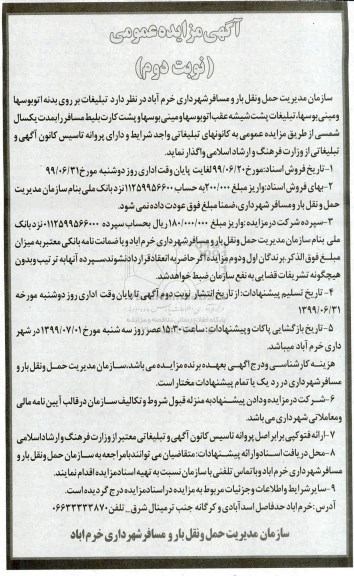 آگهی مزایده عمومی
(نوبت دوم)
سازمان مدیریت حمل ونقل بار و مسافر شهرداری خرم آباد در نظر دارد تبلیغات بر روی بدنه اتوبوسها
ومینی بوسها، تبلیغات پشت شیشه عقب اتوبوسها ومینی بوسها و پشت کارت بلیط مسافر را بمدت یکسال
شمسی از طریق مزایده عمومی به کانونهای تبلیغاتی واجد شرایط و دارای پروانه تاسیس کانون آگهی و
تبلیغاتی از وزارت فرهنگ و ارشاد اسلامی واگذار نماید.
۱-تاریخ فروش اسناد:مورخ ۹۹/۰۶/۲۰ لغایت پایان وقت اداری روز دوشنبه مورخ ۹۹/۰۶/۳۱
۲-بهای فروش اسناد:واریز مبلغ ۲۰۰/۰۰۰ به حساب ۰۱۱۲۵۹۹۵۶۶۰۰۰ نزد بانک ملی بنام سازمان مدیریت
حمل ونقل بار و مسافر شهرداری،ضمنا مبلغ فوق عودت داده نمی شود.
۳-سپرده شرکت در مزایده :واریز مبلغ ۱۸۰/۰۰۰/۰۰۰ ریال بحساب سپرده ۰۱۱۲۵۹۹۵۶۶۰۰۰ نزد بانک
ملی بنام سازمان مدیریت حمل ونقل بار و مسافر شهرداری خرم آباد و یا ضمانت نامه بانکی معتبر به میزان
مبلغ فوق الذکر.برندگان اول ودوم مزایده اگر حاضر به انعقاد قرارداد نشوند سپرده آنها به ترتیب وبدون
هیچگونه تشریفات قضایی به نفع سازمان ضبط خواهد شد.
۴- تاریخ تسلیم پیشنهادات: از تاریخ انتشار نوبت دوم آگهی تا پایان وقت اداری روز دوشنبه مورخه
۱۳۹۹/۰۶/۳۱
۵- تاریخ بازگشایی پاکات و پیشنهادات : ساعت ۱۵:۳۰ عصر روز سه شنبه مورخ ۱۳۹۹/۰۷/۰۱ در شهر
داری خرم آباد میباشد.
هزینه کارشناسی و درج آگهی بعهده برنده مزایده می باشد،سازمان مدیریت حمل ونقل بار و
مسافر شهرداری در رد یک یا تمام پیشنهادات مختار است.
۶-شرکت در مزایده ودادن پیشنهاد به منزله قبول شروط و تکالیف سازمان در قالب آیین نامه مالی
ومعاملاتی شهرداری می باشد.
۷-ارائه فتوکپی برابر اصل پروانه تاسیس کانون آگهی و تبلیغاتی معتبر از وزارت فرهنگ و ارشاد اسلامی
۸-محل دریافت اسناد وارائه پیشنهادات: متقاضیان می توانند با مراجعه به سازمان حمل ونقل بار و
مسافر شهرداری خرم آباد و یا تماس تلفنی با سازمان نسبت به تهیه اسناد مزایده اقدام نمایند.
۹-سایر شرایط واطلاعات و جزئیات مربوط به مزایده در اسناد مزایده درج گردیده است.
آدرس: خرم آباد حدفاصل اسدآبادی و کرگانه جنب ترمینال شرق - تلفن ۰۶۶۳۳۳۳۳۸۷۰
سازمان مدیریت حمل ونقل بار و مسافر شهرداری خرم آباد